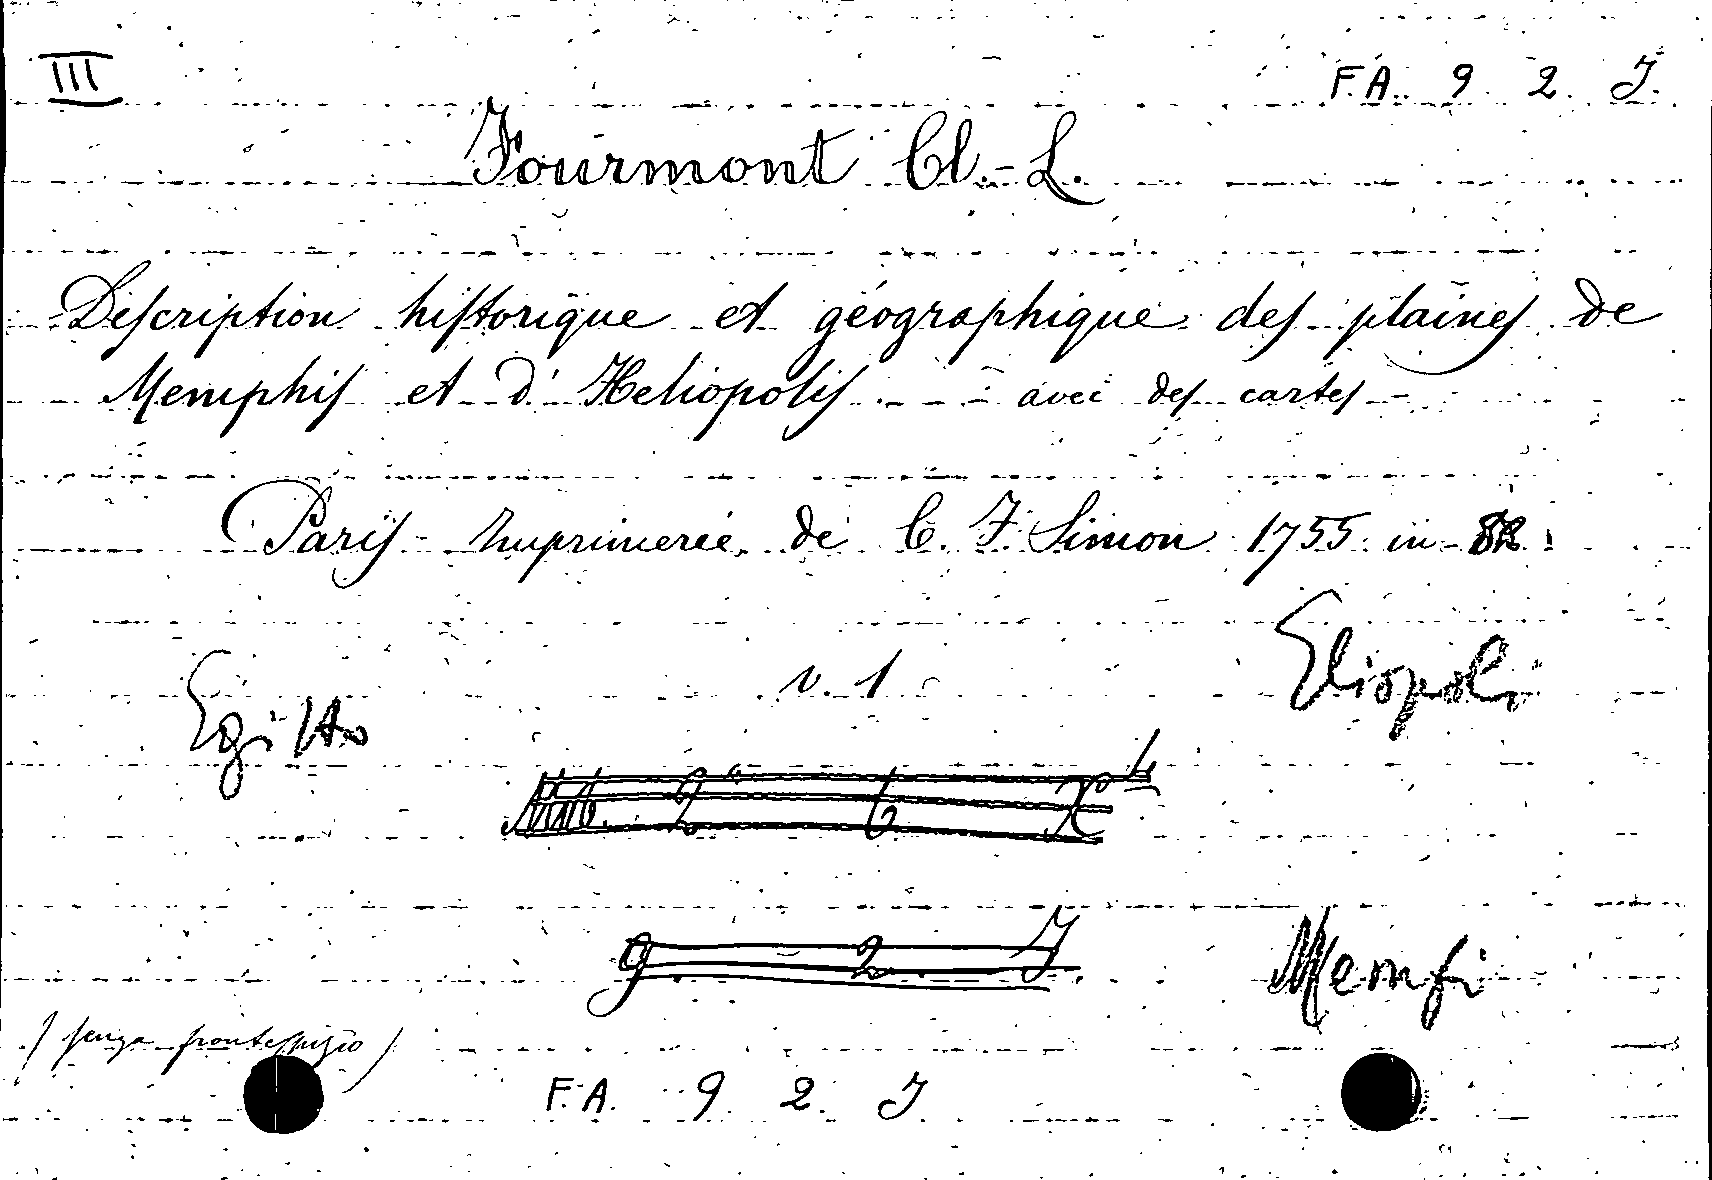 III
F.A. 9. 2. J.
Fourmont Cl.-L.
Description historique et géographique des plaines de
Memphis et d'Heliopolis - avec des cartes -
Paris - Imprimerie de C. J. Simon 1755 in-
Eliopoli
v. 1
Egitto
2 6
9. 2. J.
Memfi
(senza frontespizio)
F.A. 9. 2. J